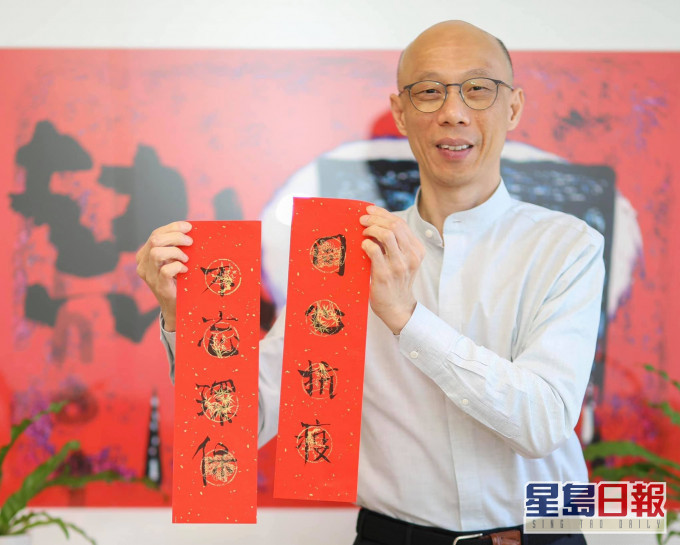 同心抗疫
不忘環保
星島日報
SING TAO DAILY